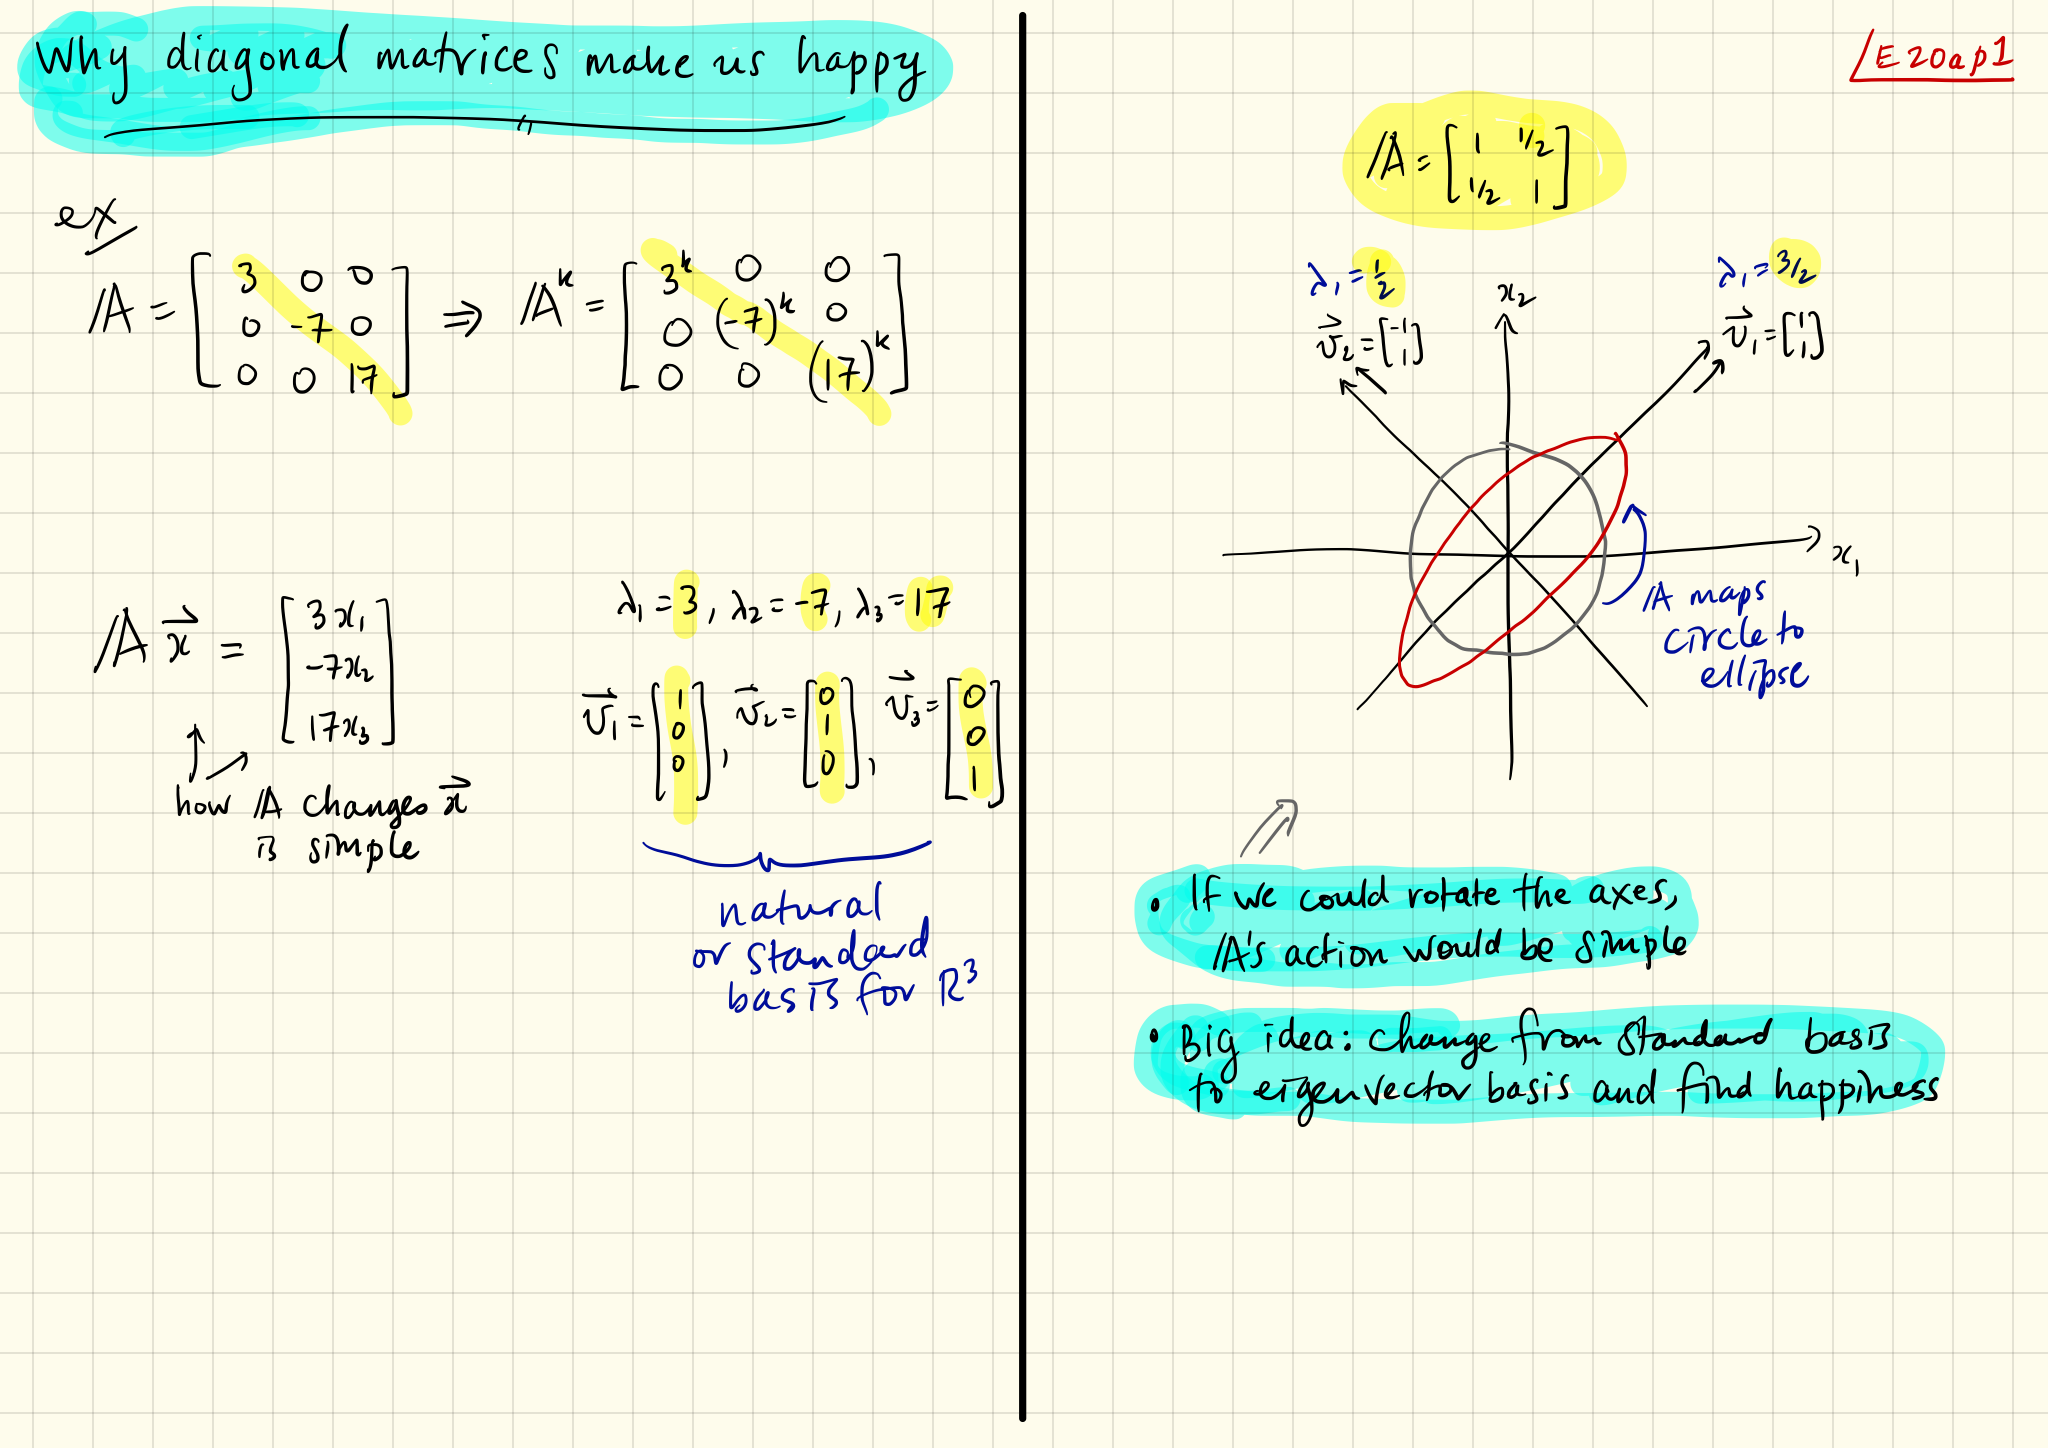 Why diagonal matrices make us happy
ex
A = [3 0 0; 0 -7 0; 0 0 17] ⇒ A^k = [3^k 0 0; 0 (-7)^k 0; 0 0 (17)^k]
A x⃗ = [3x₁; -7x₂; 17x₃]
how A changes x⃗
is simple
λ₁ = 3, λ₂ = -7, λ₃ = 17
v⃗₁ = [1; 0; 0], v⃗₂ = [0; 1; 0], v⃗₃ = [0; 0; 1]
natural
or standard
basis for R³
E20ap1
A = [1 1/2; 1/2 1]
λ₁ = 1/2
v⃗₂ = [-1; 1]
x₂
λ₁ = 3/2
v⃗₁ = [1; 1]
x₁
A maps
circle to
ellipse
• If we could rotate the axes,
A's action would be simple
• Big idea: change from standard basis
to eigenvector basis and find happiness